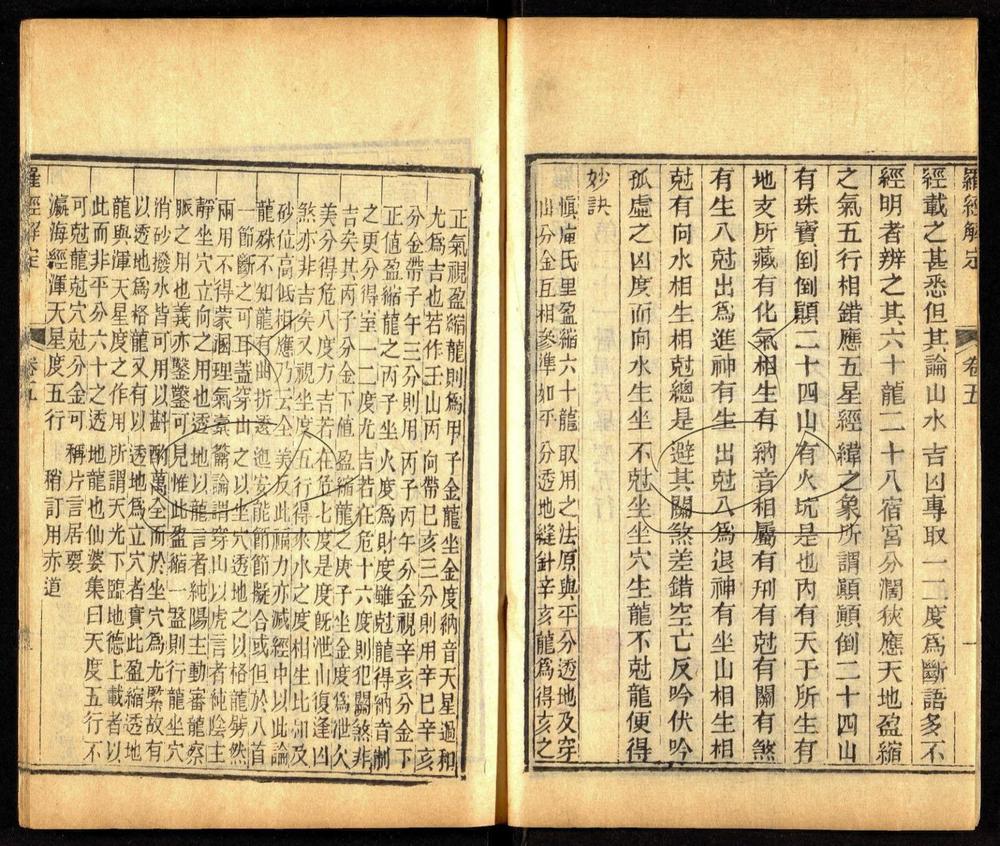 羅經解定
卷五
經載之甚悉但其論山水吉凶專取一二度為斷語多不
經明者辨之其六十龍二十八宿宮分濶狹應天地盈縮
之氣五行相錯應五星經緯之象所謂顚顚倒二十四山
有珠寶倒倒顚二十四山有火坑是也內有天干所生有
地支所藏有化氣相生有納音相屬有刑有尅有關有煞
有生入尅出為進神有生出尅入為退神有坐山相生相
尅有向水相生相尅總是避其關煞差錯空亡反吟伏吟
孤虛之凶度而向水生坐不尅坐坐穴生龍不尅龍便得
妙訣
慎庵氏曰盈縮六十龍取用之法原與平分透地及穿
山分金互相參準如平分透地縫針辛亥龍為得亥之
正氣視盈縮龍則為甲子金龍坐金度納音天星過和
尤為吉也若作壬山丙向帶巳亥三分則用辛巳辛亥
分金帶子午三分則用丙子丙午分金視辛亥分金下
正值盈縮龍之丙子坐火度為財度雖尅龍得納音制
之更分得室一二度尤吉若在危十六度則犯關煞非
吉矣其丙子分金下値盈縮龍之庚子坐金度為泄火
美分得危八度方吉若在危七度是度旣泄山復逢凶
煞亦非吉矣又視坐度五行得來水之度相生比如及
砂位高低相應乃云全美反此福力亦减經中以此論
龍殊不知龍有曲折透迤安能節節擬合或但於八首
一節斷之可耳蓋穿山之以坐穴透地之以格龍劈然
兩用不得蒙溷理氣槖籥論謂穿山以虎言者純陰主
靜坐穴立向之用也透地以龍言者純陽主動審龍察
脈之用也義亦鑿鑿可見惟此盈縮一盤則行龍坐穴
消砂撥水皆可用以斟酌萬全而於坐穴為尤緊故有
以透地為格龍又有以透地為立穴者實此盈縮透地
龍與渾天星度之作用所謂天光下臨地德上載者以
此而非平分六十之透地龍也仙婆集曰天度五行不
可尅龍尅穴尅分金可稱片言居要
瀛海經渾天星度五行稍訂用赤道
羅經解定
卷五